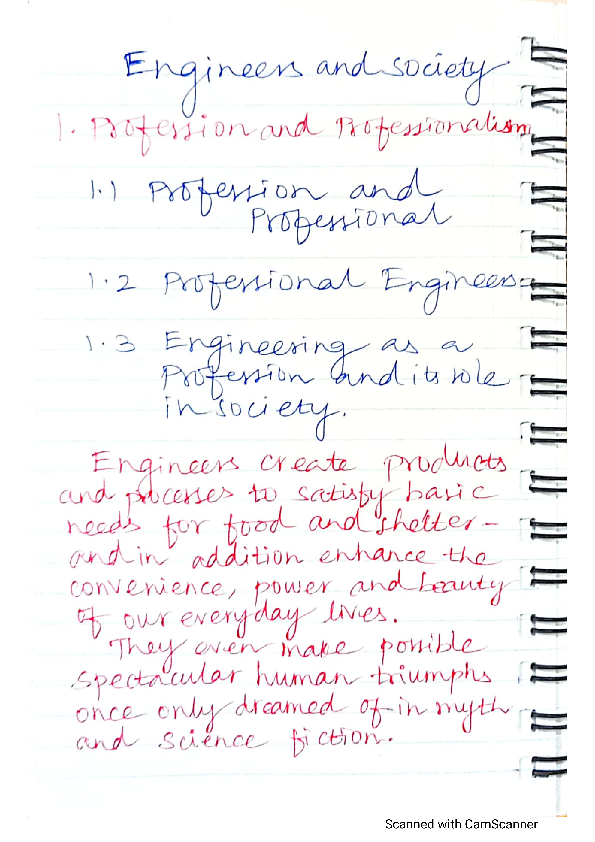 Engineers and society
1. Profession and Professionalism
1.1 Profession and
Professional
1.2 Professional Engineers
1.3 Engineering as a
Profession and its role
in society.
Engineers create products
and processes to satisfy basic
needs for food and shelter -
and in addition enhance the
convenience, power and beauty
of our everyday lives.
They even make possible
spectacular human triumphs
once only dreamed of in myth
and science fiction.
Scanned with CamScanner